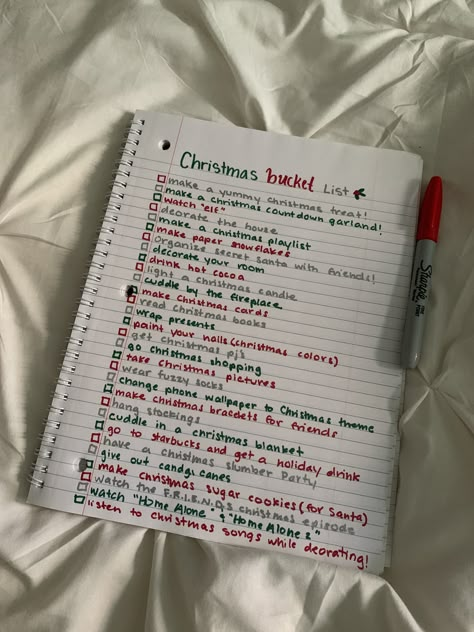 Christmas bucket List
make a yummy christmas treat!
make a christmas countdown garland!
watch "elf"
deorate the house
make a christmas playlist
make paper snowflakes
Organize secret santa with friends!
decorate your room
drink hot cocoa
light a christmas candle
cuddle by the fireplace
make christmas cards
read christmas books
wrap presents
paint your nails (christmas colors)
get christmas pj's
go christmas shopping
take christmas pictures
wear fuzzy socks
change phone wallpaper to christmas theme
make christmas bracelets for friends
hang stockings
cuddle in a christmas blanket
go to starbucks and get a holiday drink
have a christmas slumber Party
give out candy canes
make christmas sugar cookies (for Santa)
watch the F.R.I.E.N.D.S christmas episode
watch "Home Alone" & "Home Alone 2"
listen to christmas songs while deorating!
Sharpie